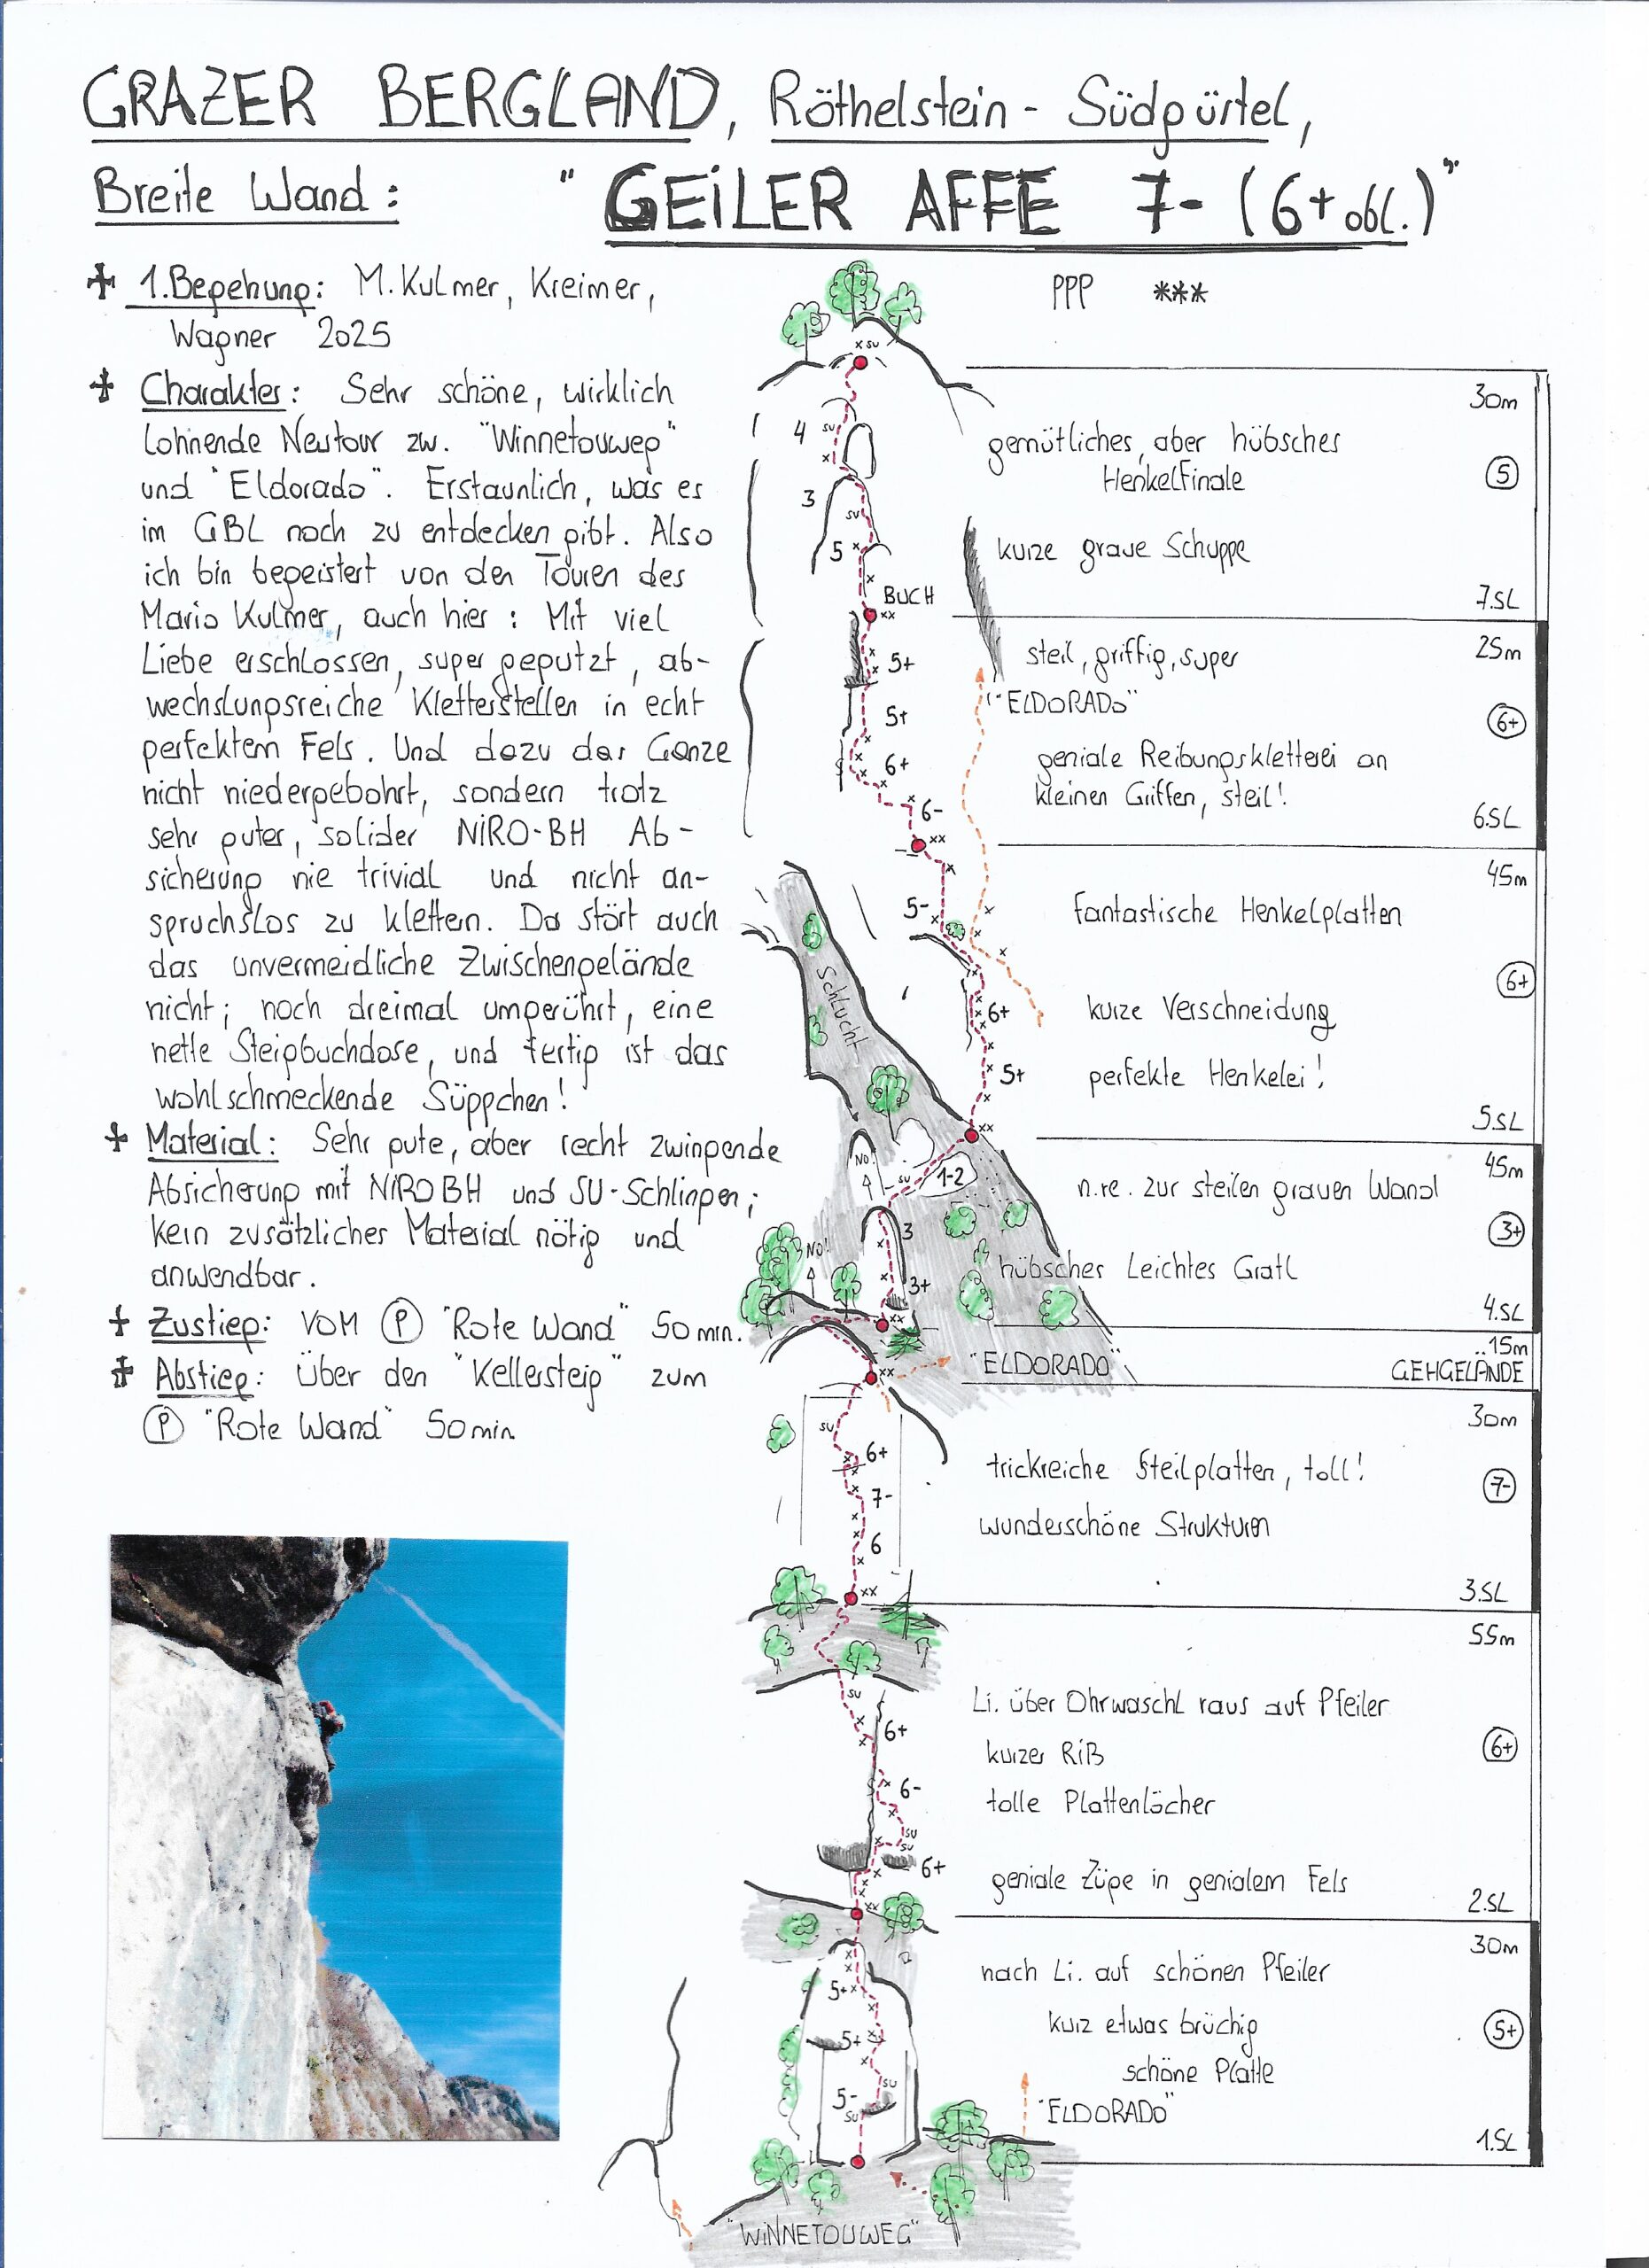 GRAZER BERGLAND, Röthelstein - Südgürtel,
Breite Wand: "GEiLER AFFE 7- (6+ obl.)"
+ 1.Begehung: M.Kulmer, Kreimer,
Wagner 2025
PPP ***
+ Charakter: Sehr schöne, wirklich
lohnende Neutour zw. "Winnetouweg"
und "Eldorado". Erstaunlich, was es
im GBL noch zu entdecken gibt. Also
ich bin begeistert von den Touren des
Mario Kulmer, auch hier: Mit viel
Liebe erschlossen, super geputzt, ab-
wechslungsreiche Kletterstellen in echt
perfektem Fels. Und dazu das Ganze
nicht niedergebohrt, sondern trotz
sehr guter, solider NiRO-BH Ab-
sicherung nie trivial und nicht an-
spruchslos zu klettern. Da stört auch
das unvermeidliche Zwischengelände
nicht; noch dreimal umgerührt, eine
nette Steigbuchdose, und fertig ist das
wohlschmeckende Süppchen!
+ Material: Sehr gute, aber recht zwingende
Absicherung mit NiRO BH und SU-Schlingen;
kein zusätzliches Material nötig und
anwendbar.
+ Zustieg: VOM P "Rote Wand" 50 min.
+ Abstieg: Über den "Kellersteig" zum
P "Rote Wand" 50 min
x SU
4
SU
x
3
SU
5 x
x
BUCH
xx
30m
gemütliches, aber hübsches
Henkelfinale
5
kurze graue Schuppe
7.SL
5+
5+
6+
6-
xx
25m
steil, griffig, super
"ELDORADO"
6+
geniale Reibungskletterei an
kleinen Griffen, steil!
6.SL
5-
Schlucht
6+
5+
xx
45m
fantastische Henkelplatten
6+
kurze Verschneidung
perfekte Henkelei!
5.SL
NO!
SU
1-2
3
NO!
3+
xx
45m
n.re. zur steilen grauen Wand
3+
hübscher Leichtes Gratl
4.SL
15m
GEHGELÄNDE
"ELDORADO"
xx
SU
6+
7-
6
xx
30m
trickreiche Steilplatten, toll!
7-
wunderschöne Strukturen
3.SL
SU
6+
6-
SU
SU
6+
xx
55m
Li. über Ohrwaschl raus auf Pfeiler
kurzer RiB
6+
tolle Plattenlöcher
geniale Züge in genialem Fels
2.SL
5+
5+
SU
5-
SU
30m
nach Li. auf schönen Pfeiler
kurz etwas brüchig
5+
schöne Platte
"ELDORADO"
1.SL
"WiNNETOUWEG"